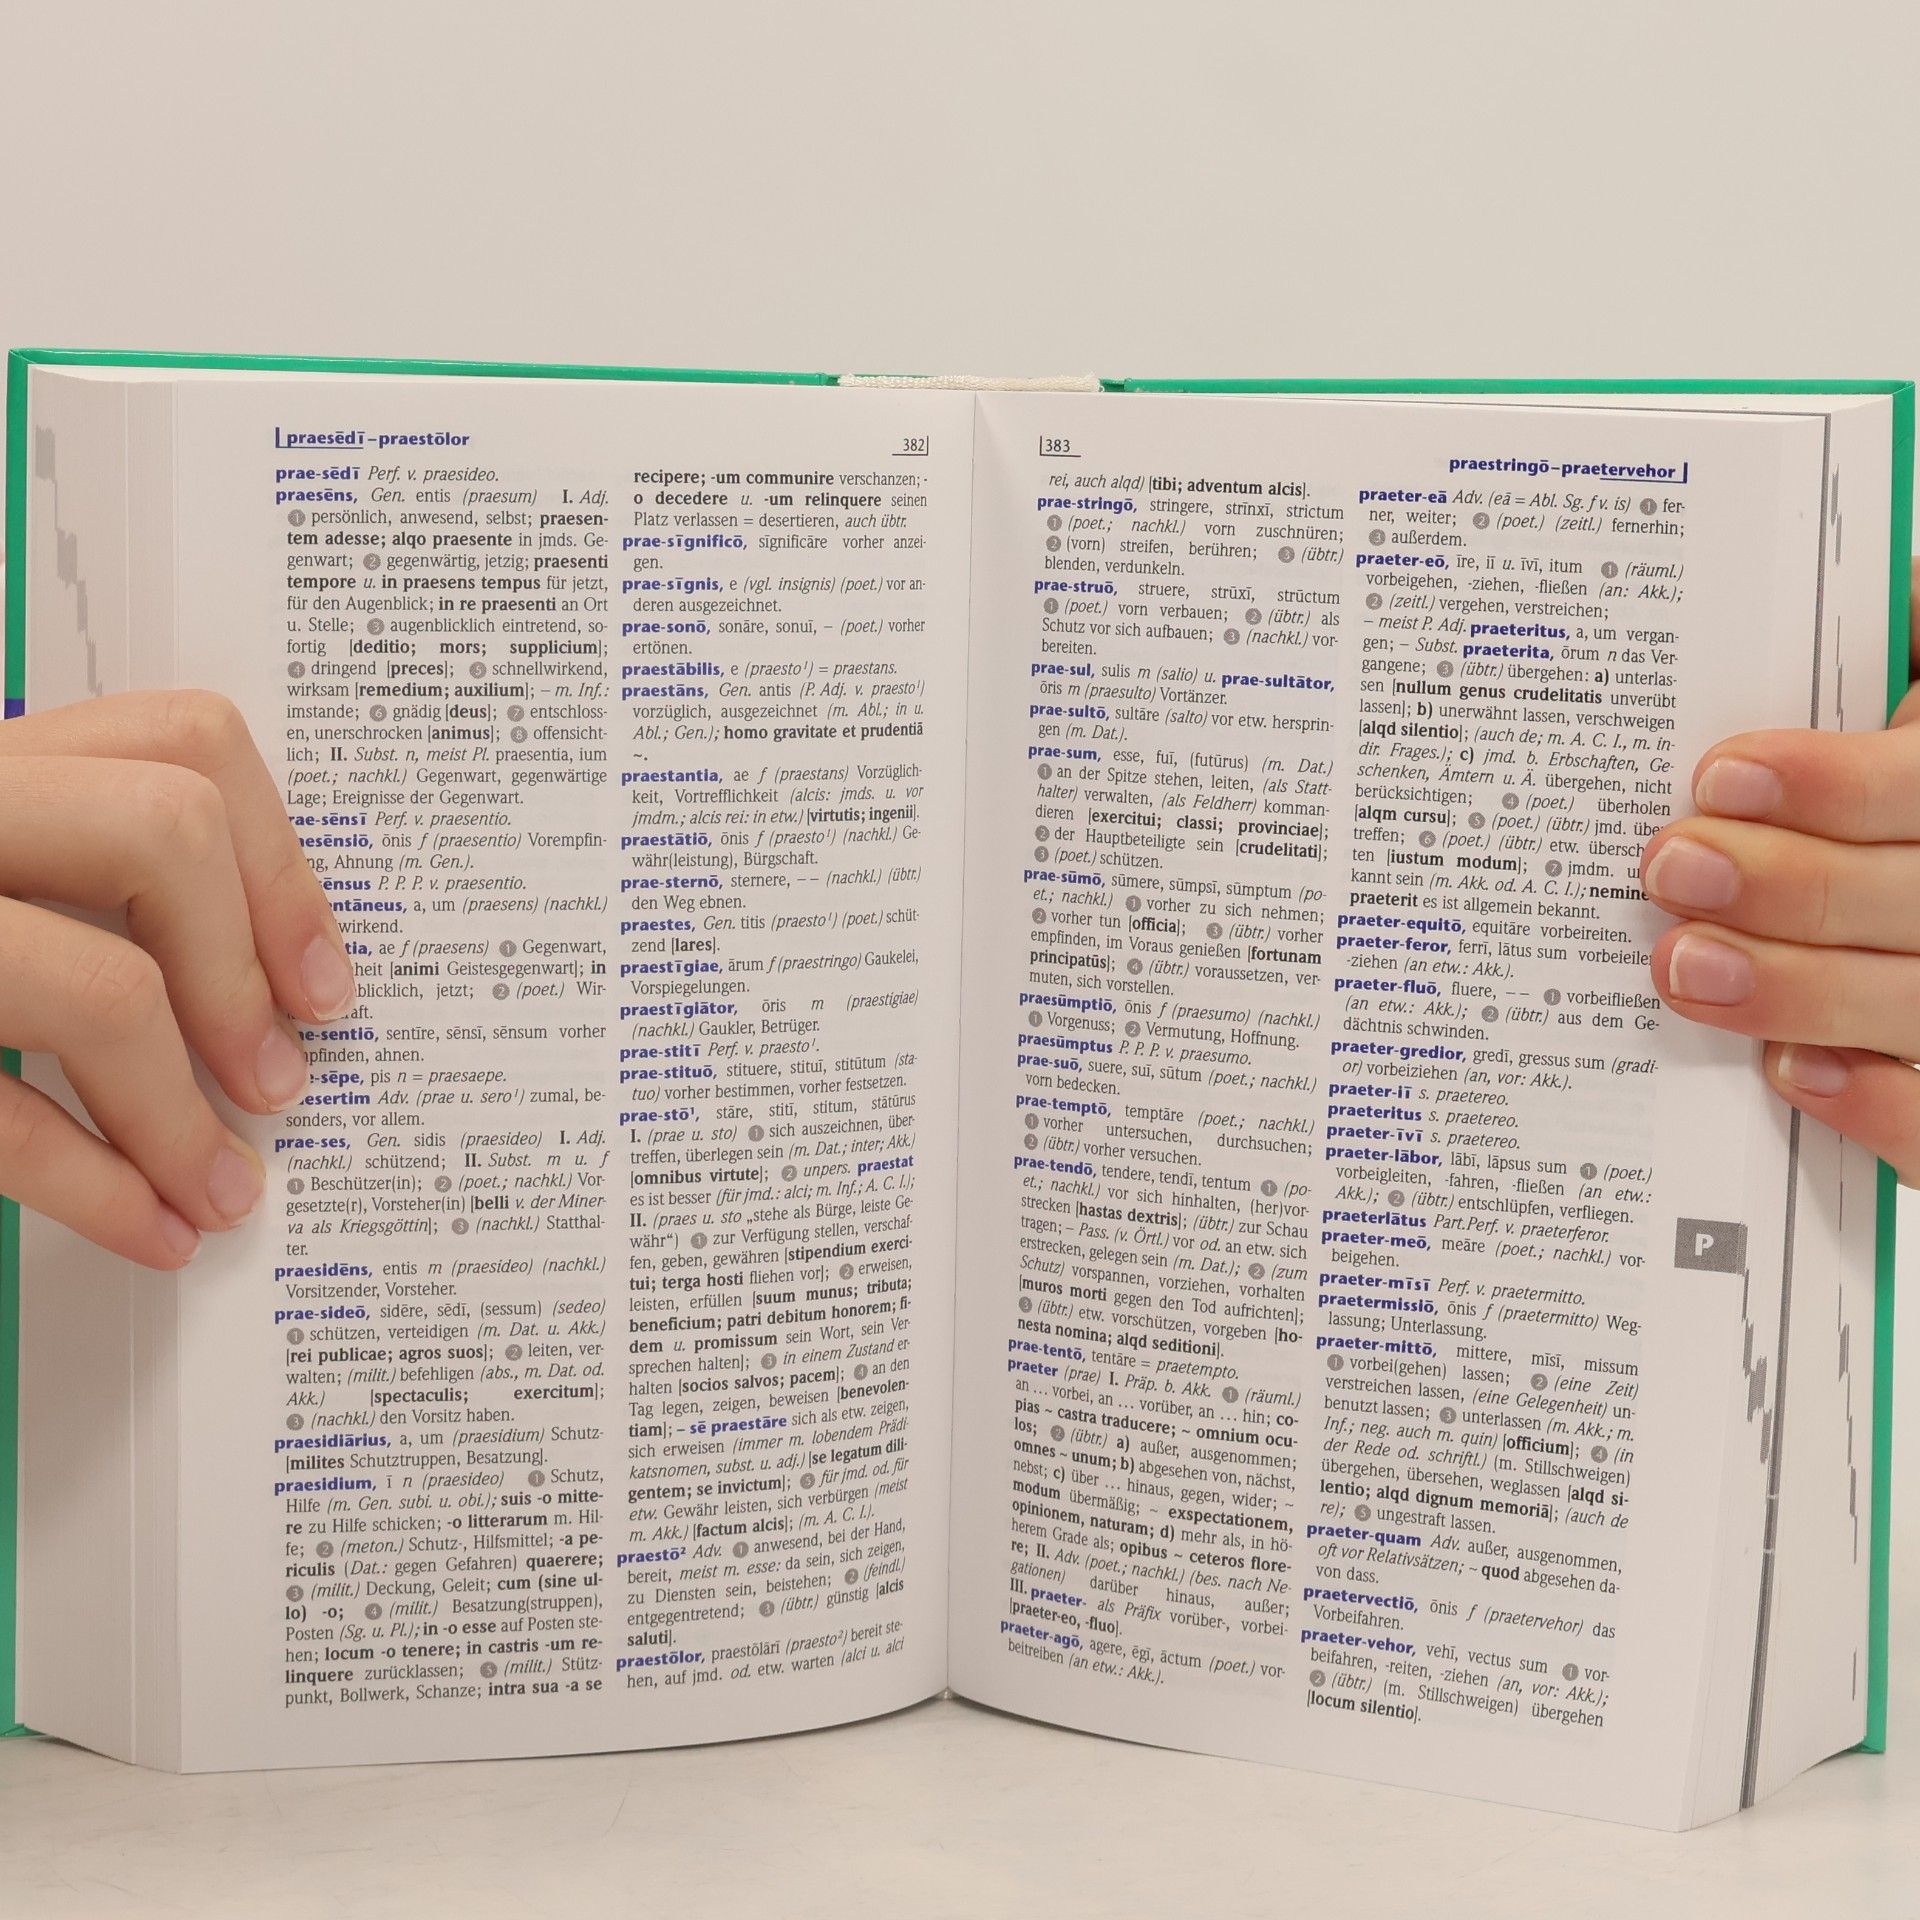 praesēdī–praestōlor
382
prae-sēdī Perf. v. praesideo.
praesēns, Gen. entis (praesum) I. Adj.
1 persönlich, anwesend, selbst; praesen-
tem adesse; alqo praesente in jmds. Ge-
genwart; 2 gegenwärtig, jetzig; praesenti
tempore u. in praesens tempus für jetzt,
für den Augenblick; in re praesenti an Ort
u. Stelle; 3 augenblicklich eintretend, so-
fortig [deditio; mors; supplicium];
4 dringend [preces]; 5 schnellwirkend,
wirksam [remedium; auxilium]; – m. Inf.:
imstande; 6 gnädig [deus]; 7 entschloss-
en, unerschrocken [animus]; 8 offensicht-
lich; II. Subst. n, meist Pl. praesentia, ium
(poet.; nachkl.) Gegenwart, gegenwärtige
Lage; Ereignisse der Gegenwart.
rae-sēnsī Perf. v. praesentio.
esēnsiō, ōnis f (praesentio) Vorempfin-
ng, Ahnung (m. Gen.).
ēnsus P. P. P. v. praesentio.
ntāneus, a, um (praesens) (nachkl.)
wirkend.
tia, ae f (praesens) 1 Gegenwart,
heit [animi Geistesgegenwart]; in
blicklich, jetzt; 2 (poet.) Wir-
raft.
ae-sentiō, sentīre, sēnsī, sēnsum vorher
pfinden, ahnen.
e-sēpe, pis n = praesaepe.
esertim Adv. (prae u. sero¹) zumal, be-
sonders, vor allem.
prae-ses, Gen. sidis (praesideo) I. Adj.
(nachkl.) schützend; II. Subst. m u. f
1 Beschützer(in); 2 (poet.; nachkl.) Vor-
gesetzte(r), Vorsteher(in) [belli v. der Miner-
va als Kriegsgöttin]; 3 (nachkl.) Statthal-
ter.
praesidēns, entis m (praesideo) (nachkl.)
Vorsitzender, Vorsteher.
prae-sideō, sidēre, sēdī, (sessum) (sedeo)
1 schützen, verteidigen (m. Dat. u. Akk.)
[rei publicae; agros suos]; 2 leiten, ver-
walten; (milit.) befehligen (abs., m. Dat. od.
Akk.) [spectaculis; exercitum];
3 (nachkl.) den Vorsitz haben.
praesidiārius, a, um (praesidium) Schutz-
[milites Schutztruppen, Besatzung].
praesidium, ī n (praesideo) 1 Schutz,
Hilfe (m. Gen. subi. u. obi.); suis -o mitte-
re zu Hilfe schicken; -o litterarum m. Hil-
fe; 2 (meton.) Schutz-, Hilfsmittel; -a pe-
riculis (Dat.: gegen Gefahren) quaerere;
3 (milit.) Deckung, Geleit; cum (sine ul-
lo) -o; 4 (milit.) Besatzung(struppen),
Posten (Sg. u. Pl.); in -o esse auf Posten ste-
hen; locum -o tenere; in castris -um re-
linquere zurücklassen; 5 (milit.) Stütz-
punkt, Bollwerk, Schanze; intra sua -a se
recipere; -um communire verschanzen; -
o decedere u. -um relinquere seinen
Platz verlassen = desertieren, auch übtr.
prae-sīgnificō, sīgnificāre vorher anzei-
gen.
prae-sīgnis, e (vgl. insignis) (poet.) vor an-
deren ausgezeichnet.
prae-sonō, sonāre, sonuī, – (poet.) vorher
ertönen.
praestābilis, e (praesto¹) = praestans.
praestāns, Gen. antis (P. Adj. v. praesto¹)
vorzüglich, ausgezeichnet (m. Abl.; in u.
Abl.; Gen.); homo gravitate et prudentiā
~.
praestantia, ae f (praestans) Vorzüglich-
keit, Vortrefflichkeit (alcis: jmds. u. vor
jmdm.; alcis rei: in etw.) [virtutis; ingenii].
praestātiō, ōnis f (praesto¹) (nachkl.) Ge-
währ(leistung), Bürgschaft.
prae-sternō, sternere, – – (nachkl.) (übtr.)
den Weg ebnen.
praestes, Gen. titis (praesto¹) (poet.) schüt-
zend [lares].
praestīgiae, ārum f (praestringo) Gaukelei,
Vorspiegelungen.
praestīgiātor, ōris m (praestigiae)
(nachkl.) Gaukler, Betrüger.
prae-stitī Perf. v. praesto¹.
prae-stituō, stituere, stituī, stitūtum (sta-
tuo) vorher bestimmen, vorher festsetzen.
prae-stō¹, stāre, stitī, stitum, stātūrus
I. (prae u. sto) 1 sich auszeichnen, über-
treffen, überlegen sein (m. Dat.; inter; Akk.)
[omnibus virtute]; 2 unpers. praestat
es ist besser (für jmd.: alci; m. Inf.; A. C. I.);
II. (praes u. sto „stehe als Bürge, leiste Ge-
währ“) 1 zur Verfügung stellen, verschaf-
fen, geben, gewähren [stipendium exerci-
tui; terga hosti fliehen vor]; 2 erweisen,
leisten, erfüllen [suum munus; tributa;
beneficium; patri debitum honorem; fi-
dem u. promissum sein Wort, sein Ver-
sprechen halten]; 3 in einem Zustand er-
halten [socios salvos; pacem]; 4 an den
Tag legen, zeigen, beweisen [benevolen-
tiam]; – sē praestāre sich als etw. zeigen,
sich erweisen (immer m. lobendem Prädi-
katsnomen, subst. u. adj.) [se legatum dili-
gentem; se invictum]; 5 für jmd. od. für
etw. Gewähr leisten, sich verbürgen (meist
m. Akk.) [factum alcis]; (m. A. C. I.).
praestō² Adv. 1 anwesend, bei der Hand,
bereit, meist m. esse: da sein, sich zeigen,
zu Diensten sein, beistehen; 2 (feindl.)
entgegentretend; 3 (übtr.) günstig [alcis
saluti].
praestōlor, praestōlārī (praesto²) bereit ste-
hen, auf jmd. od. etw. warten (alci u. alci
383
praestringō–praetervehor
rei, auch alqd) [tibi; adventum alcis].
prae-stringō, stringere, strīnxī, strictum
1 (poet.; nachkl.) vorn zuschnüren;
2 (vorn) streifen, berühren; 3 (übtr.)
blenden, verdunkeln.
prae-struō, struere, strūxī, strūctum
1 (poet.) vorn verbauen; 2 (übtr.) als
Schutz vor sich aufbauen; 3 (nachkl.) vor-
bereiten.
prae-sul, sulis m (salio) u. prae-sultātor,
ōris m (praesulto) Vortänzer.
prae-sultō, sultāre (salto) vor etw. hersprin-
gen (m. Dat.).
prae-sum, esse, fuī, (futūrus) (m. Dat.)
1 an der Spitze stehen, leiten, (als Statt-
halter) verwalten, (als Feldherr) komman-
dieren [exercitui; classi; provinciae];
2 der Hauptbeteiligte sein [crudelitati];
3 (poet.) schützen.
prae-sūmō, sūmere, sūmpsī, sūmptum (po-
et.; nachkl.) 1 vorher zu sich nehmen;
2 vorher tun [officia]; 3 (übtr.) vorher
empfinden, im Voraus genießen [fortunam
principatūs]; 4 (übtr.) voraussetzen, ver-
muten, sich vorstellen.
praesūmptiō, ōnis f (praesumo) (nachkl.)
1 Vorgenuss; 2 Vermutung, Hoffnung.
praesūmptus P. P. P. v. praesumo.
prae-suō, suere, suī, sūtum (poet.; nachkl.)
vorn bedecken.
prae-temptō, temptāre (poet.; nachkl.)
1 vorher untersuchen, durchsuchen;
2 (übtr.) vorher versuchen.
prae-tendō, tendere, tendī, tentum 1 (po-
et.; nachkl.) vor sich hinhalten, (her)vor-
strecken [hastas dextris]; (übtr.) zur Schau
tragen; – Pass. (v. Örtl.) vor od. an etw. sich
erstrecken, gelegen sein (m. Dat.); 2 (zum
Schutz) vorspannen, vorziehen, vorhalten
[muros morti gegen den Tod aufrichten];
3 (übtr.) etw. vorschützen, vorgeben [ho-
nesta nomina; alqd seditioni].
prae-tentō, tentāre = praetempto.
praeter (prae) I. Präp. b. Akk. 1 (räuml.)
an ... vorbei, an ... vorüber, an ... hin; co-
pias ~ castra traducere; ~ omnium ocu-
los; 2 (übtr.) a) außer, ausgenommen;
omnes ~ unum; b) abgesehen von, nächst,
nebst; c) über ... hinaus, gegen, wider; ~
modum übermäßig; ~ exspectationem,
opinionem, naturam; d) mehr als, in hö-
herem Grade als; opibus ~ ceteros flore-
re; II. Adv. (poet.; nachkl.) (bes. nach Ne-
gationen) darüber hinaus, außer;
III. praeter- als Präfix vorüber-, vorbei-
[praeter-eo, -fluo].
praeter-agō, agere, ēgī, āctum (poet.) vor-
beitreiben (an etw.: Akk.).
praeter-eā Adv. (eā = Abl. Sg. f v. is) 1 fer-
ner, weiter; 2 (poet.) (zeitl.) fernerhin;
3 außerdem.
praeter-eō, īre, iī u. īvī, itum 1 (räuml.)
vorbeigehen, -ziehen, -fließen (an: Akk.);
2 (zeitl.) vergehen, verstreichen;
– meist P. Adj. praeteritus, a, um vergan-
gen; – Subst. praeterita, ōrum n das Ver-
gangene; 3 (übtr.) übergehen: a) unterlas-
sen [nullum genus crudelitatis unverübt
lassen]; b) unerwähnt lassen, verschweigen
[alqd silentio]; (auch de; m. A. C. I., m. in-
dir. Frages.); c) jmd. b. Erbschaften, Ge-
schenken, Ämtern u. Ä. übergehen, nicht
berücksichtigen; 4 (poet.) überholen
[alqm cursu]; 5 (poet.) (übtr.) jmd. übe
treffen; 6 (poet.) (übtr.) etw. übersch
ten [iustum modum]; 7 jmdm. u
kannt sein (m. Akk. od. A. C. I.); nemine
praeterit es ist allgemein bekannt.
praeter-equitō, equitāre vorbeireiten.
praeter-feror, ferrī, lātus sum vorbeieile
-ziehen (an etw.: Akk.).
praeter-fluō, fluere, – – 1 vorbeifließen
(an etw.: Akk.); 2 (übtr.) aus dem Ge-
dächtnis schwinden.
praeter-gredior, gredī, gressus sum (gradi-
or) vorbeiziehen (an, vor: Akk.).
praeter-iī s. praetereo.
praeteritus s. praetereo.
praeter-īvī s. praetereo.
praeter-lābor, lābī, lāpsus sum 1 (poet.)
vorbeigleiten, -fahren, -fließen (an etw.:
Akk.); 2 (übtr.) entschlüpfen, verfliegen.
praeterlātus Part.Perf. v. praeterferor.
praeter-meō, meāre (poet.; nachkl.) vor-
beigehen.
praeter-mīsī Perf. v. praetermitto.
praetermissiō, ōnis f (praetermitto) Weg-
lassung; Unterlassung.
praeter-mittō, mittere, mīsī, missum
1 vorbei(gehen) lassen; 2 (eine Zeit)
verstreichen lassen, (eine Gelegenheit) un-
benutzt lassen; 3 unterlassen (m. Akk.; m.
Inf.; neg. auch m. quin) [officium]; 4 (in
der Rede od. schriftl.) (m. Stillschweigen)
übergehen, übersehen, weglassen [alqd si-
lentio; alqd dignum memoriā]; (auch de
re); 5 ungestraft lassen.
praeter-quam Adv. außer, ausgenommen,
oft vor Relativsätzen; ~ quod abgesehen da-
von dass.
praetervectiō, ōnis f (praetervehor) das
Vorbeifahren.
praeter-vehor, vehī, vectus sum 1 vor-
beifahren, -reiten, -ziehen (an, vor: Akk.);
2 (übtr.) (m. Stillschweigen) übergehen
[locum silentio].
P